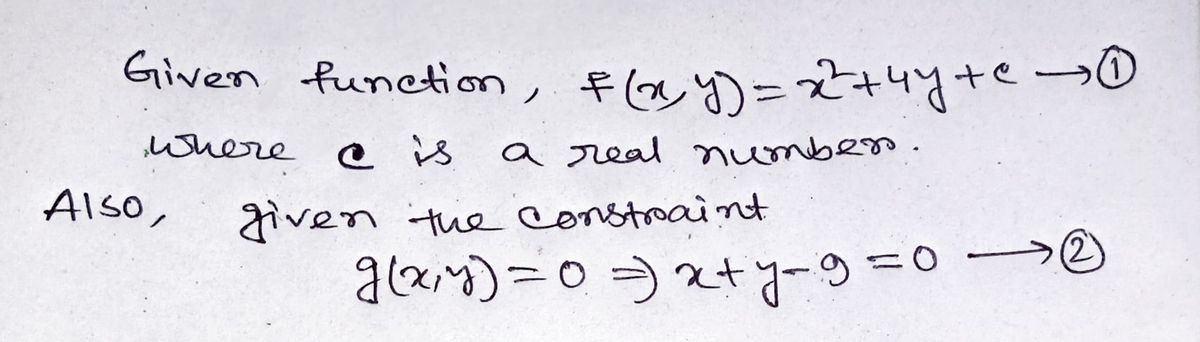 Given function, f(x,y)=x²+4y+c →①
where c is a real number.
Also, given the constraint
g(x,y)=0 ⇒ x+y-9=0 →②